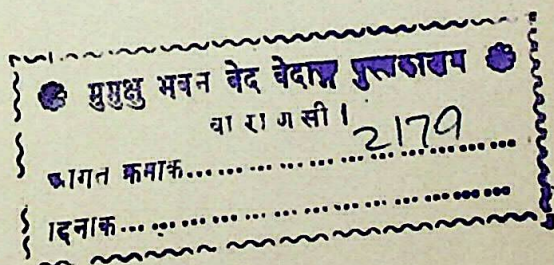 मुमुक्षु भवन वेद वेदाङ्ग पुस्तकालय
वा रा ण सी ।
आगत क्रमाक........................ 2179
दिनांक........................